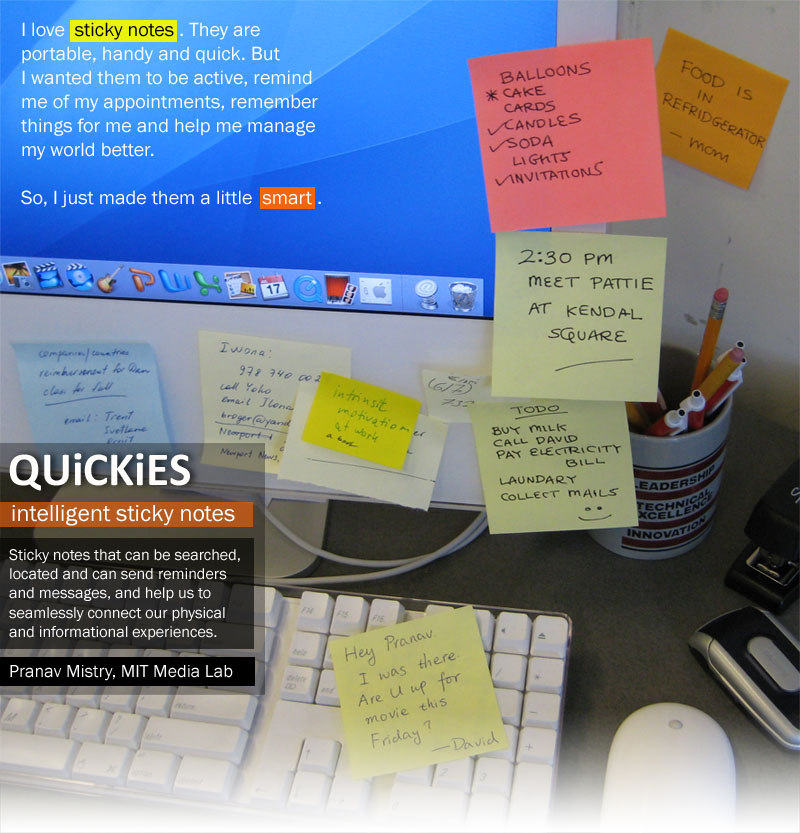 I love sticky notes. They are
portable, handy and quick. But
I wanted them to be active, remind
me of my appointments, remember
things for me and help me manage
my world better.
So, I just made them a little smart.
BALLOONS
* CAKE
CARDS
✓CANDLES
✓SODA
LIGHTS
✓INVITATIONS
FOOD IS
IN
REFRIDGERATOR
— mom
2:30 PM
MEET PATTIE
AT KENDAL
SQUARE
17
companies/countries
reimbursement for
class for fall
email: Trent
Svetlana
Iwona:
978 740 002
call Yoko
email Ilona
Newport
Newport News,
intrinsic
motivation
at work
TODO
BUY MILK
CALL DAVID
PAY ELECTRICITY
BILL
LAUNDARY
COLLECT MAILS
LEADERSHIP
TECHNICAL
EXCELLENCE
INNOVATION
QUiCKiES
intelligent sticky notes
Sticky notes that can be searched,
located and can send reminders
and messages, and help us to
seamlessly connect our physical
and informational experiences.
Pranav Mistry, MIT Media Lab
Hey Pranav.
I was there.
Are U up for
movie this
Friday?
—David